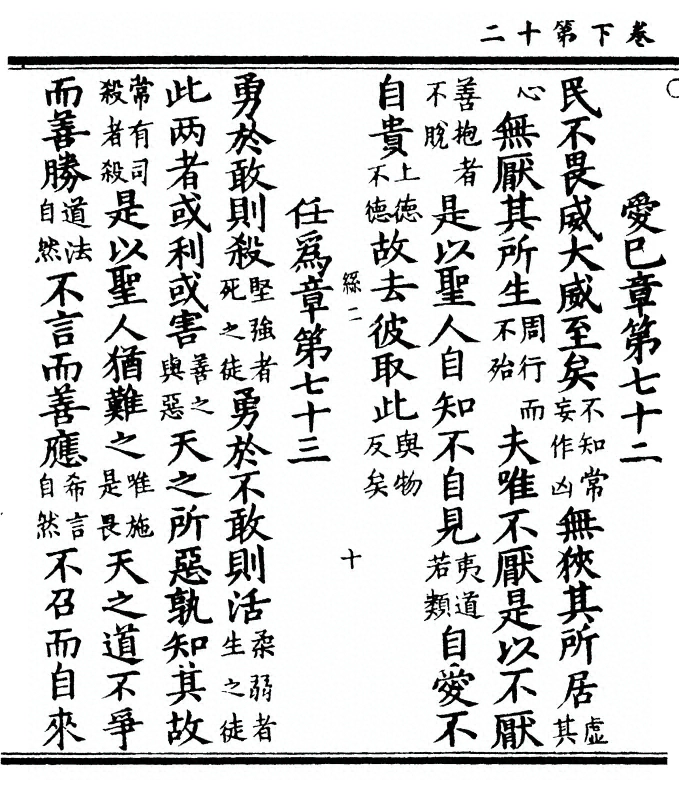 卷下第十二
愛巳章第七十二
民不畏威大威至矣不知常妄作凶無狹其所居虛其
心無厭其所生周行而不殆夫唯不厭是以不厭
善抱者不脫是以聖人自知不自見夷道若類自愛不
自貴上德不德故去彼取此與物反矣
絲二 十
任爲章第七十三
勇於敢則殺堅強者死之徒勇於不敢則活柔弱者生之徒
此两者或利或害善之與惡天之所惡孰知其故
常有司殺者殺是以聖人猶難之唯施是畏天之道不爭
而善勝道法自然不言而善應希言自然不召而自來